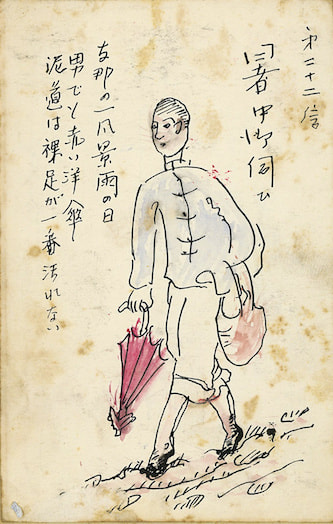 第二十二信
暑中御伺ひ
支那の一風景雨の日
男でも赤い洋傘
泥道は裸足が一番汚れない